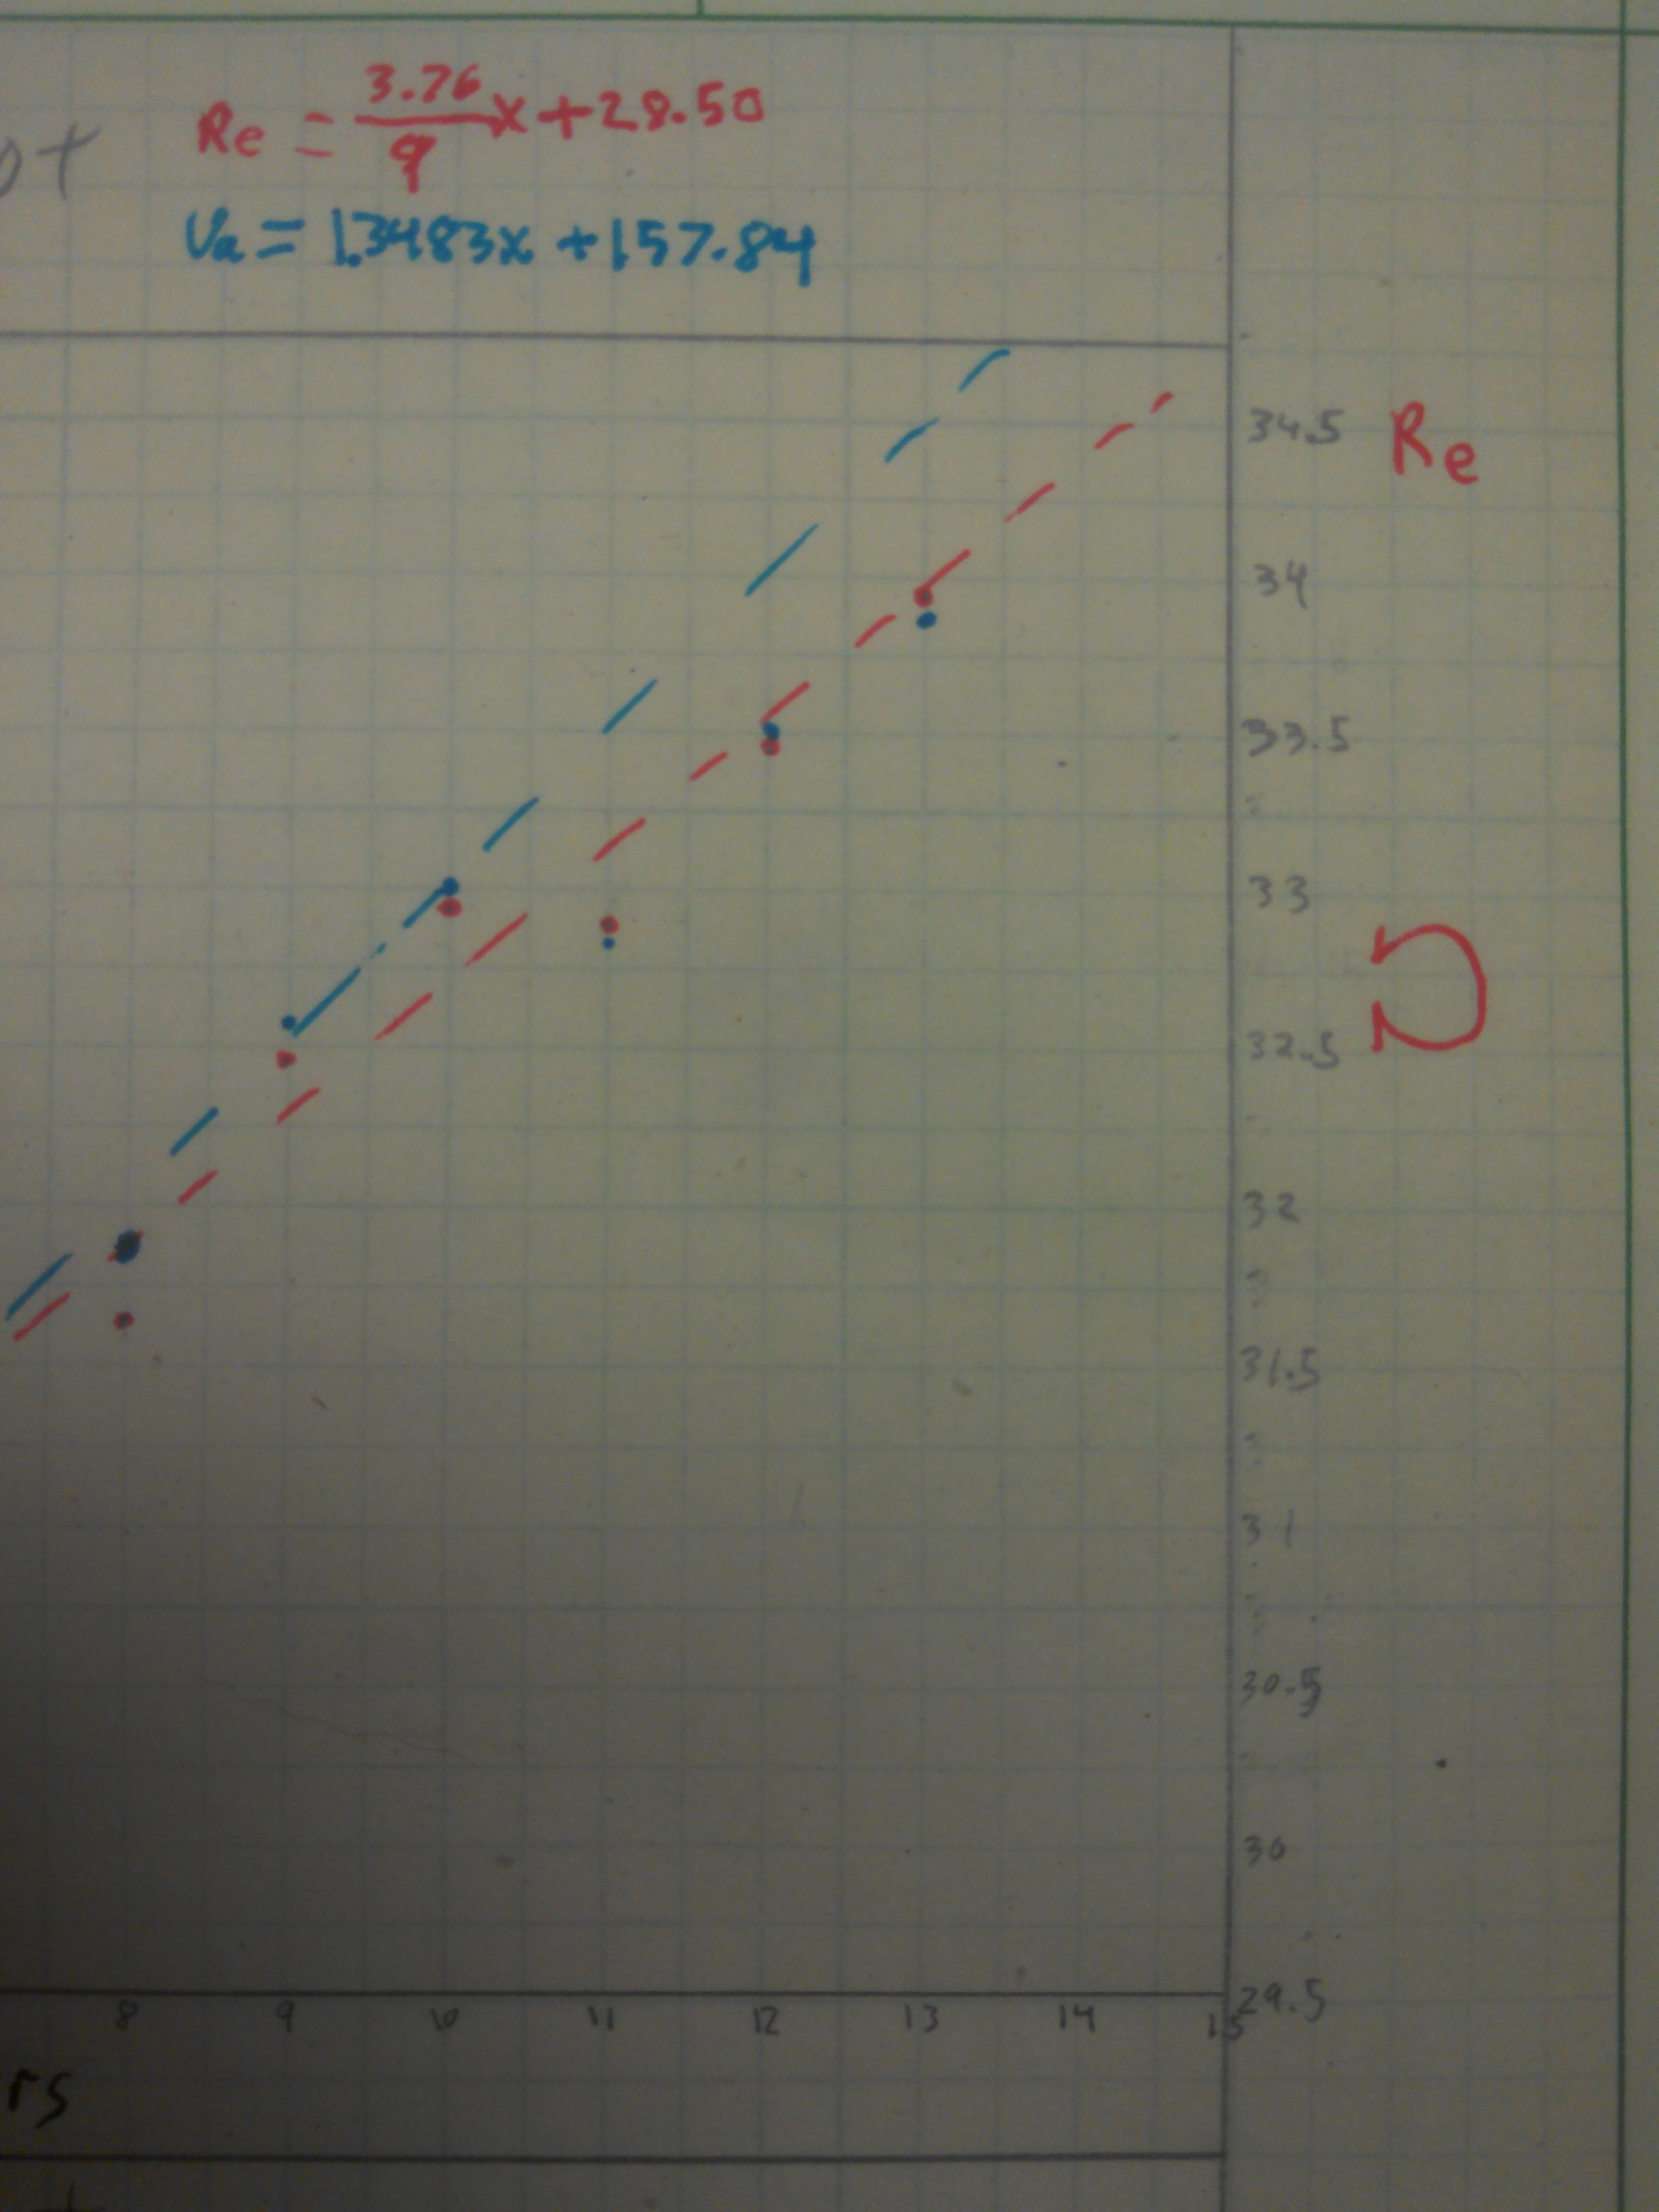 ot
Re = 3.76/9 x + 28.50
Va = 1.3483x + 157.84
34.5 Re
34
33.5
33
32.5
32
31.5
31
30.5
30
29.5
8 9 10 11 12 13 14 15
rs